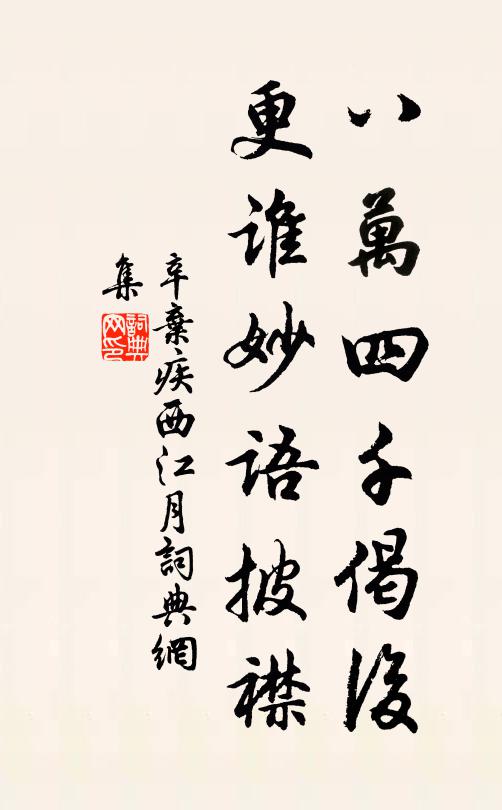 八萬四千偈後
更誰妙語披襟
辛棄疾西江月詞典網
集
詞典
网印